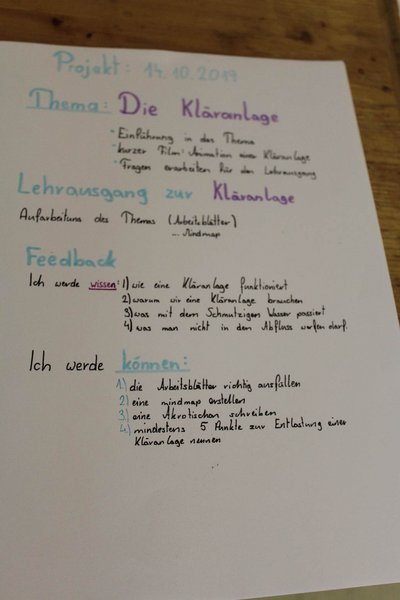 Projekt: 14.10.2019
Thema: Die Kläranlage
- Einführung in das Thema
- kurzer Film: Animation einer Kläranlage
- Fragen erarbeiten für den Lehrausgang
Lehrausgang zur Kläranlage
Aufarbeitung des Themas (Arbeitsblätter)
... Mindmap
Feedback
Ich werde wissen: 1) wie eine Kläranlage funktioniert
2) warum wir eine Kläranlage brauchen
3) was mit dem Schmutzigen Wasser passiert
4) was man nicht in den Abfluss werfen darf.
Ich werde können:
1.) die Arbeitsblätter richtig ausfüllen
2.) eine mindmap erstellen
3.) eine Akrotischon schreiben
4.) mindestens 5 Punkte zur Entlastung einer
Kläranlage nennen